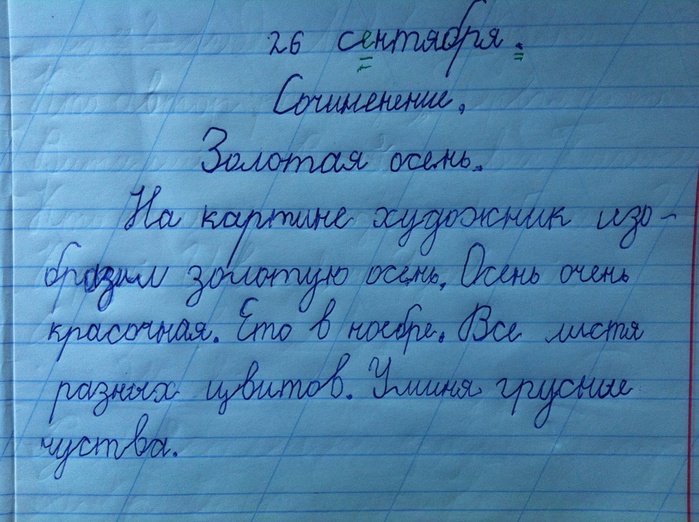 26 сентября.
Сочиненение.
Золотая осень.
На картине художник изо-
бразил золотую осень. Осень очень
красочная. Ето в ноебре. Все листя
разных цвитов. Уминя грусные
чуства.